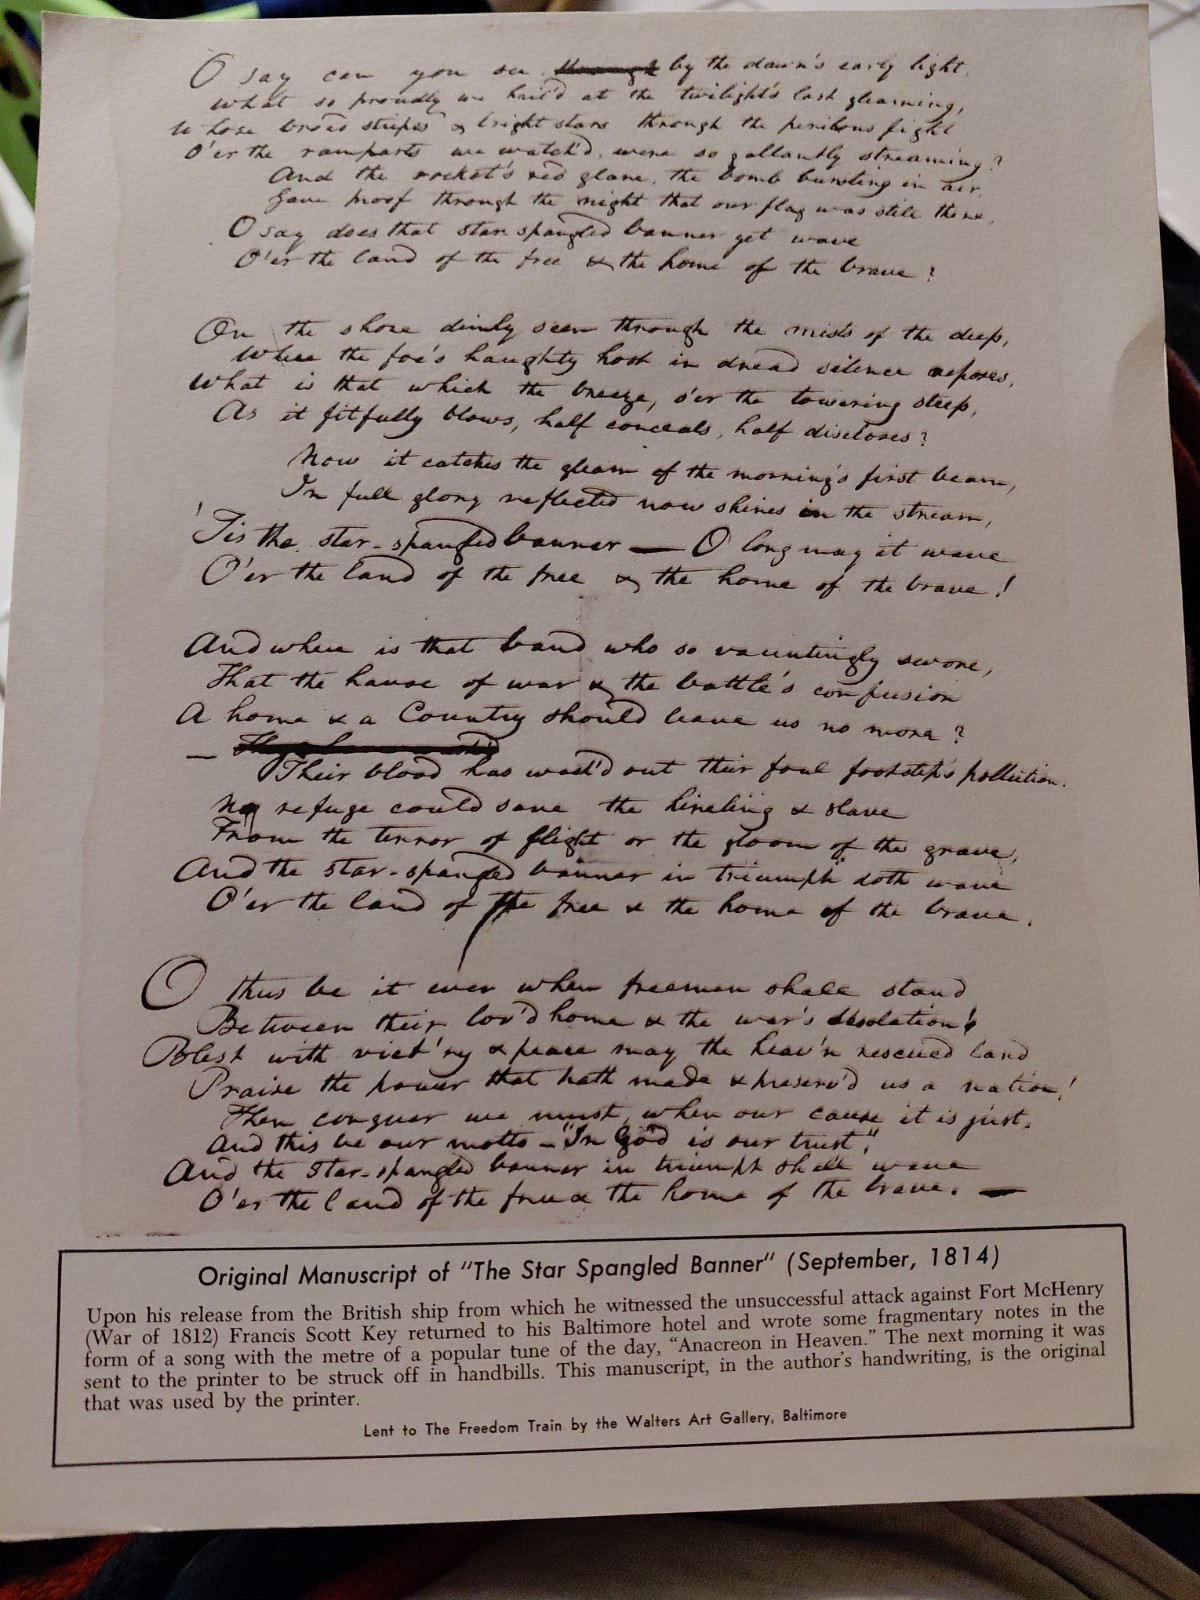 O say can you see through by the dawn's early light,
What so proudly we hail'd at the twilight's last gleaming,
Whose broad stripes & bright stars through the perilous fight
O'er the ramparts we watch'd, were so gallantly streaming?
And the rocket's red glare, the bomb bursting in air,
Gave proof through the night that our flag was still there,
O say does that star spangled banner yet wave
O'er the land of the free & the home of the brave?
On the shore dimly seen through the mists of the deep,
Where the foe's haughty host in dread silence reposes,
What is that which the breeze, o'er the towering steep,
As it fitfully blows, half conceals, half discloses?
Now it catches the gleam of the morning's first beam,
In full glory reflected now shines in the stream,
'Tis the star-spangled banner — O long may it wave
O'er the land of the free & the home of the brave!
And where is that band who so vauntingly swore,
That the havoc of war & the battle's confusion
A home & a Country should leave us no more?
—
Their blood has wash'd out their foul footstep's pollution.
No refuge could save the hireling & slave
From the terror of flight or the gloom of the grave,
And the star-spangled banner in triumph doth wave
O'er the land of the free & the home of the brave.
O thus be it ever when freemen shall stand
Between their lov'd home & the war's desolation!
Blest with vict'ry & peace may the heav'n rescued land
Praise the power that hath made & preserv'd us a nation!
Then conquer we must, when our cause it is just,
And this be our motto — "In God is our trust,"
And the star-spangled banner in triumph shall wave
O'er the land of the free & the home of the brave. —
Original Manuscript of "The Star Spangled Banner" (September, 1814)
Upon his release from the British ship from which he witnessed the unsuccessful attack against Fort McHenry
(War of 1812) Francis Scott Key returned to his Baltimore hotel and wrote some fragmentary notes in the
form of a song with the metre of a popular tune of the day, "Anacreon in Heaven." The next morning it was
sent to the printer to be struck off in handbills. This manuscript, in the author's handwriting, is the original
that was used by the printer.
Lent to The Freedom Train by the Walters Art Gallery, Baltimore